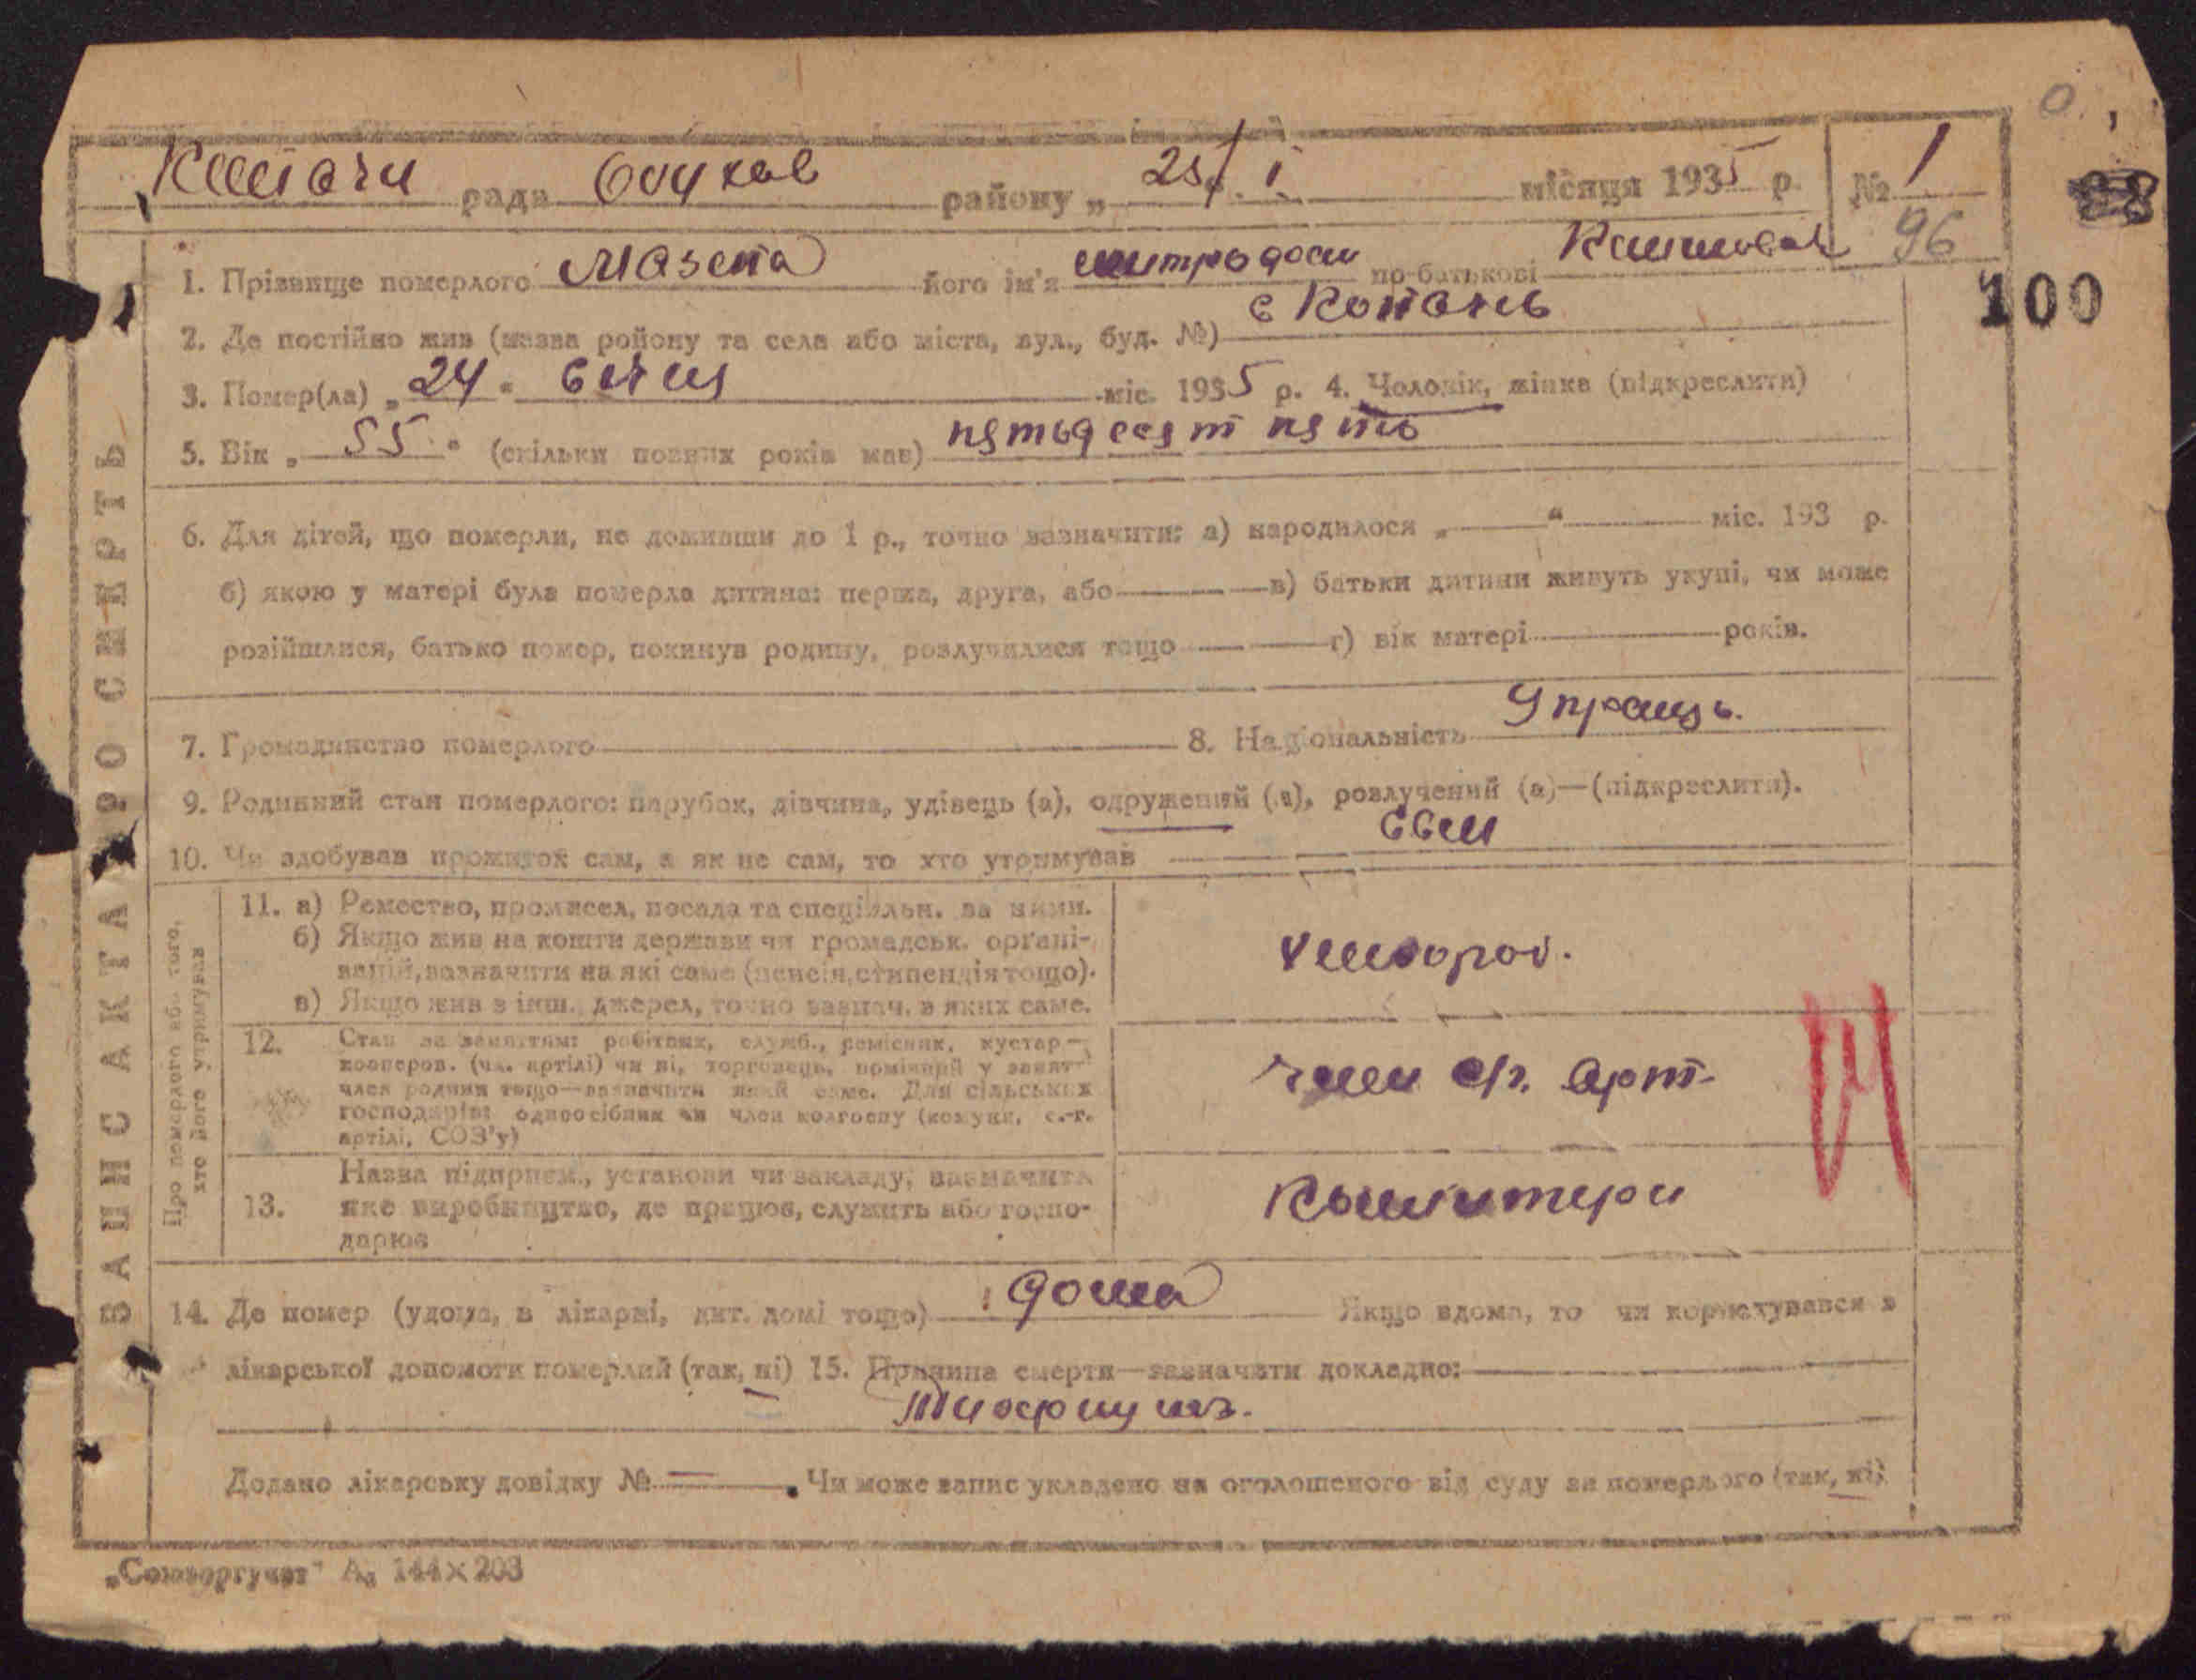 рада району „ 25/I місяця 1935 р. № 1
96
1. Прізвище померлого Мазепа його ім'я митродом по-батькові
100
2. Де постійно жив (назва району та села або міста, вул., буд. №) с Копань
3. Помер(ла) „24" січня міс. 1935 р. 4. Чоловік, жінка (підкреслити)
5. Вік „55" (скільки повних років мав) пятьдесят пять
6. Для дітей, що померли, не доживши до 1 р., точно зазначити: а) народилося „ " міс. 193 р.
б) якою у матері була померла дитина: перша, друга, або в) батьки дитини живуть укупі, чи може
розійшлися, батько помер, покинув родину, розлучилися тощо г) вік матері років.
7. Громадянство померлого 8. Національність Украць.
9. Родинний стан померлого: парубок, дівчина, удівець (а), одружений (а), розлучений (а)—(підкреслити).
10. Чи здобував прожиток сам, а як не сам, то хто утримував
ЗАПИС АКТА ПРО СМЕРТЬ
Про померлого або того, хто його утримував
11. а) Ремество, промисел, посада та спеціяльн. за ними.
б) Якщо жив на кошти держави чи громадськ. органі-
зацій, зазначити на які саме (пенсія, стипендія тощо).
в) Якщо жив з інш. джерел, точно зазнач. з яких саме.
хлебороб.
12. Стан за заняттям: робітник, служб., ремісник, кустар—
кооперов. (чл. артілі) чи ні, торговець, помічний у занят.
член родини тощо—зазначити який саме. Для сільських
господарів: одноосібник чи член колгоспу (комуни, с.-г.
артілі, СОЗ'у)
член с/г. арт.
13. Назва підприєм., установи чи закладу; зазначити
яке виробництво, де працює, служить або госпо-
дарює
14. Де помер (удома, в лікарні, дит. домі тощо) дома Якщо вдома, то чи користувався з
лікарської допомоги померлий (так, ні) 15. Причина смерти—зазначити докладно:
Додано лікарську довідку № — . Чи може запис укладено на оголошеного від суду за померлого (так, ні)
„Союзоргучет" А₅ 144×203